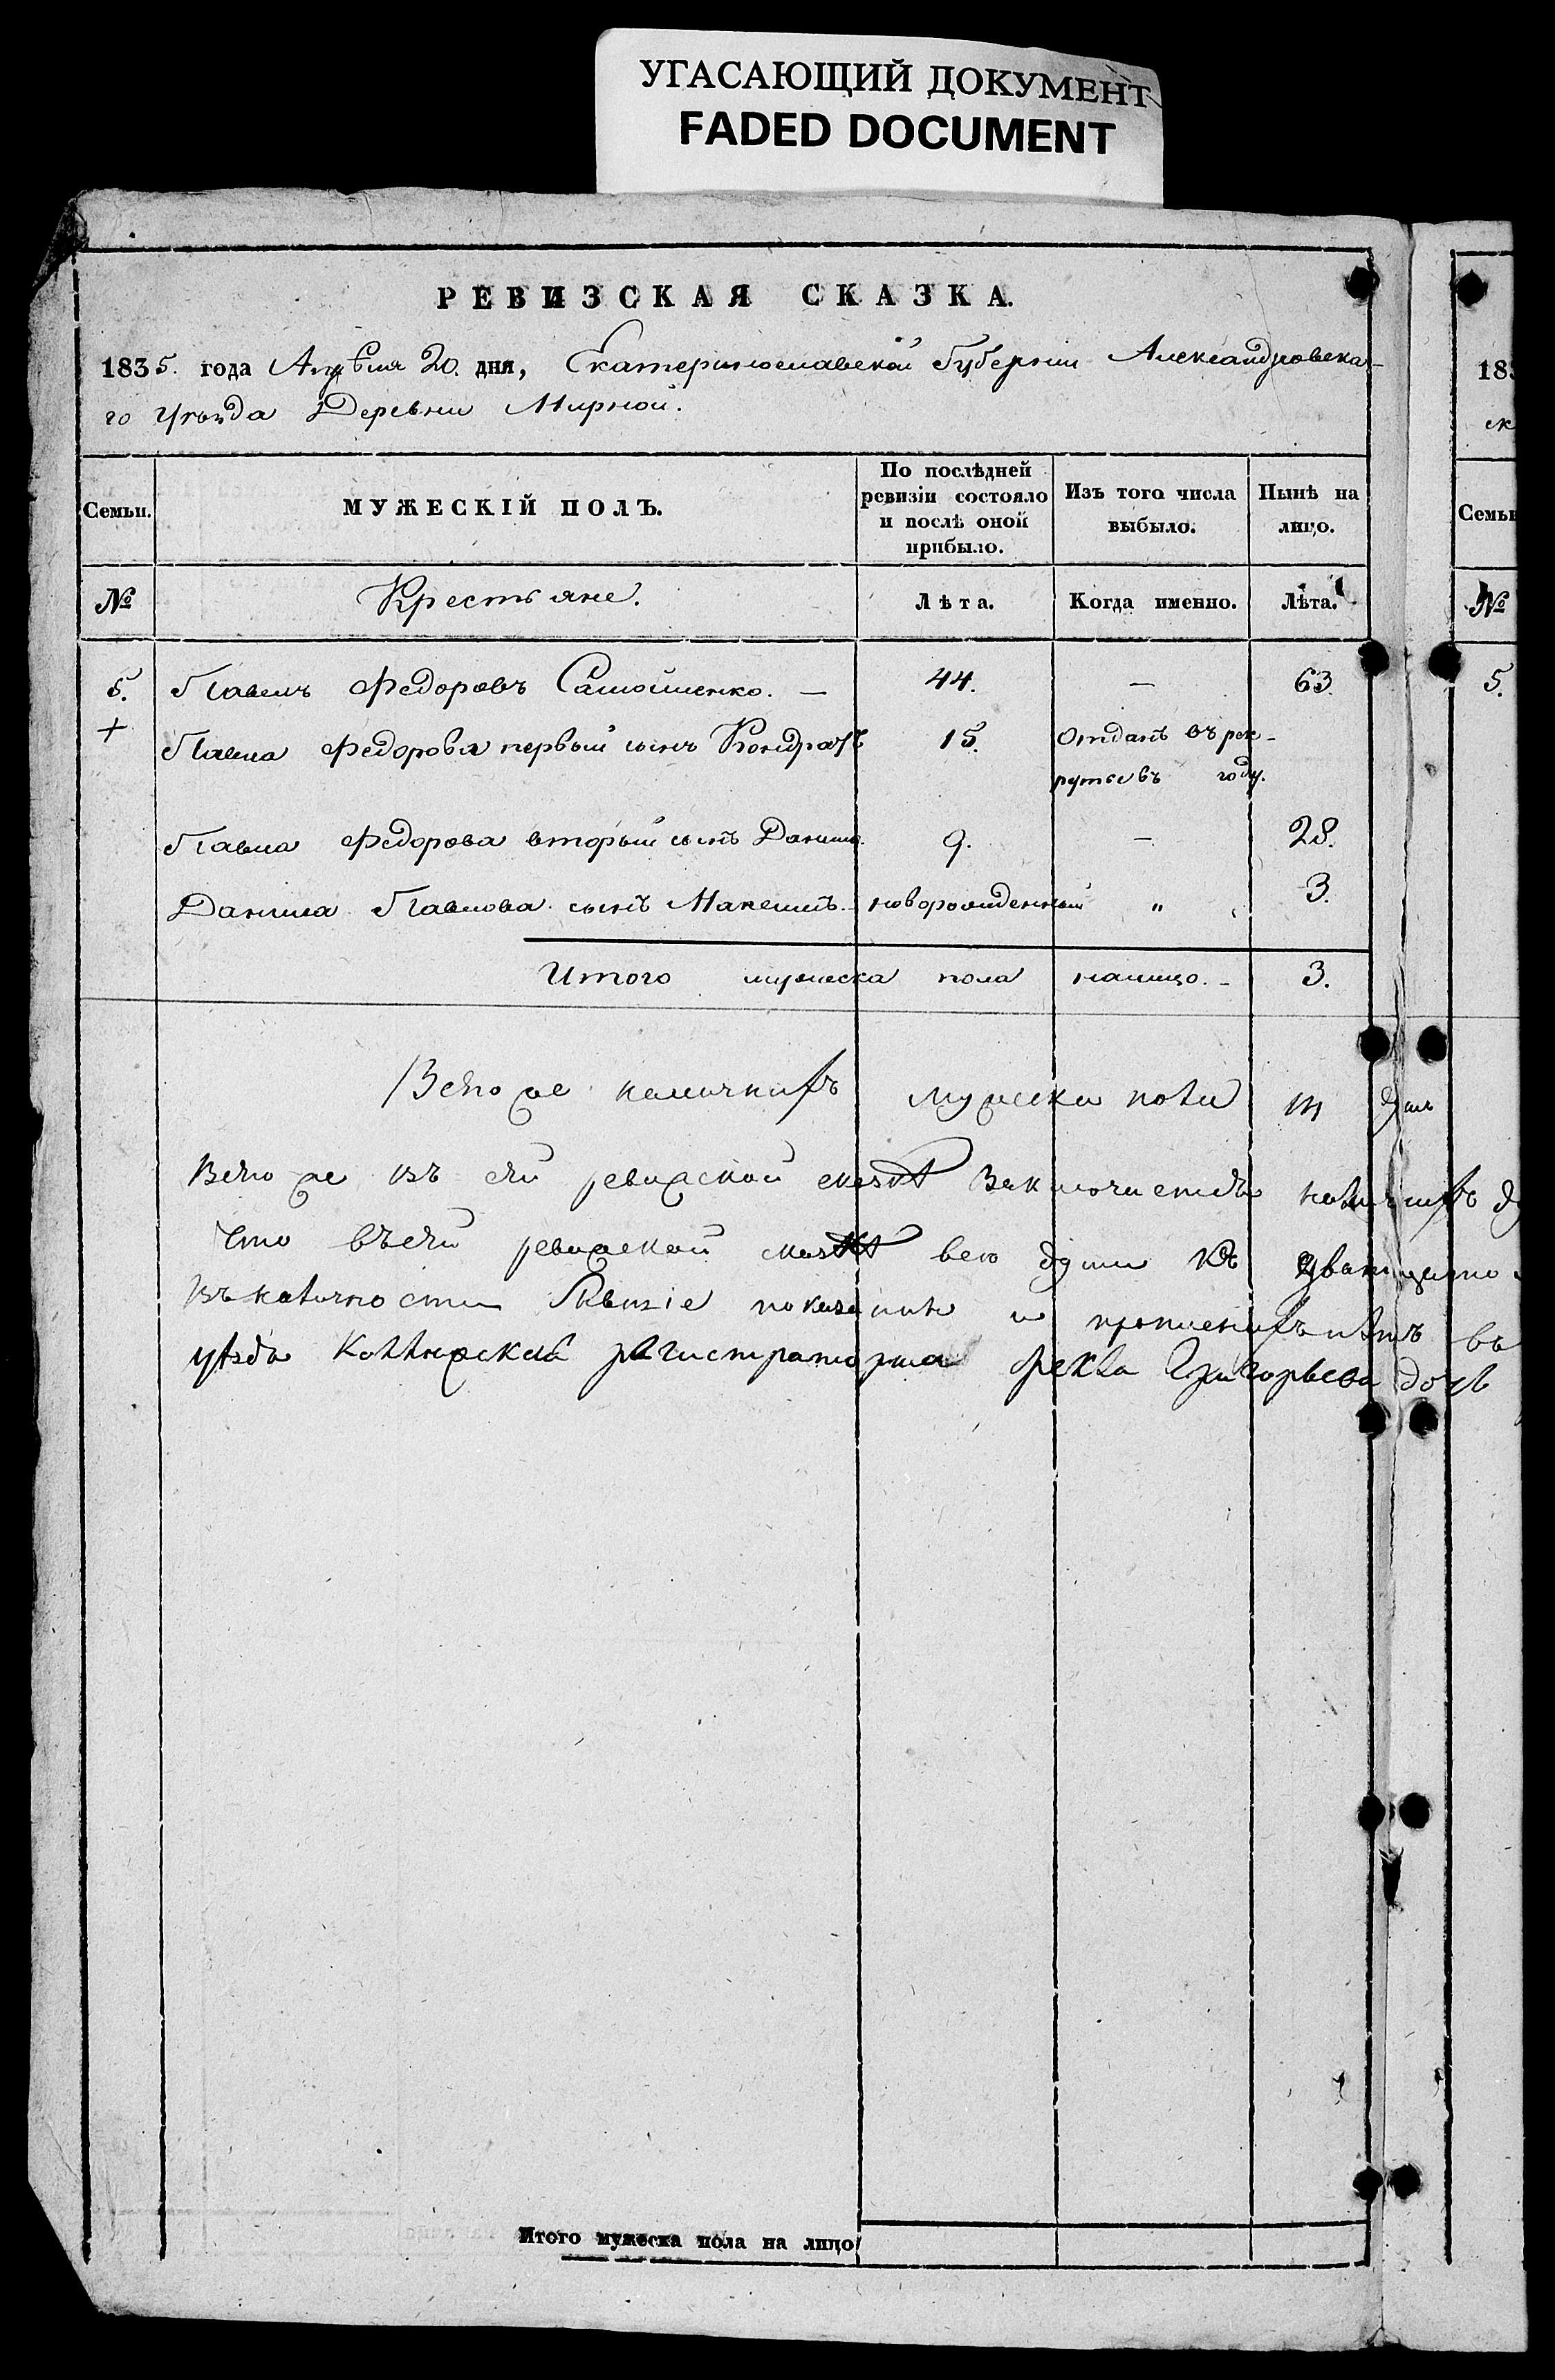 УГАСАЮЩИЙ ДОКУМЕНТ
FADED DOCUMENT
РЕВИЗСКАЯ СКАЗКА.
1835. года Апрѣля 20. дня, Екатеринославской Губернии Александровска-
го Уѣзда Деревни Мирной.
Семьи. МУЖЕСКІЙ ПОЛЪ. По послѣдней ревизіи состояло и послѣ оной прибыло. Изъ того числа выбыло. Нынѣ на лицо.
№ Крестьяне. Лѣта. Когда именно. Лѣта.
5. Павелъ Федоровъ Самойленко. — 44. — 63.
+ Павла Федорова первый сынъ Кондратъ 15. Отданъ въ рек-
рутъ въ году.
Павла Федорова вторый сынъ Данило. 9. — 28.
Данила Павлова сынъ новорожденный „ 3.
Итого мужеска пола налицо. - 3.
Всего же наличныхъ мужеска пола душъ
Всего же въ сей ревиской сказкѣ наличныхъ
Что въ сей ревиской сказкѣ
въ
уѣзда регистраторша Григорьева дочь
Итого мужеска пола на лицо
183
ск
Семьи
№
5.